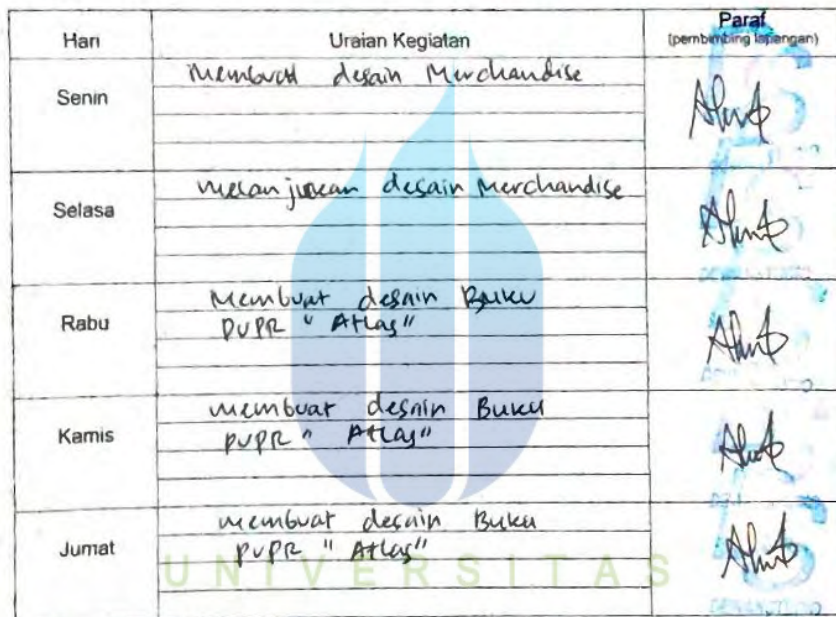 Hari Uraian Kegiatan Paraf
(pembimbing lapangan)
Senin Membuat desain Merchandise
Selasa melanjutkan desain Merchandise
Rabu Membuat desain Buku
PUPR "Atlas"
Kamis membuat desain Buku
PUPR "Atlas"
Jumat membuat desain Buku
PUPR "Atlas"
UNIVERSITAS